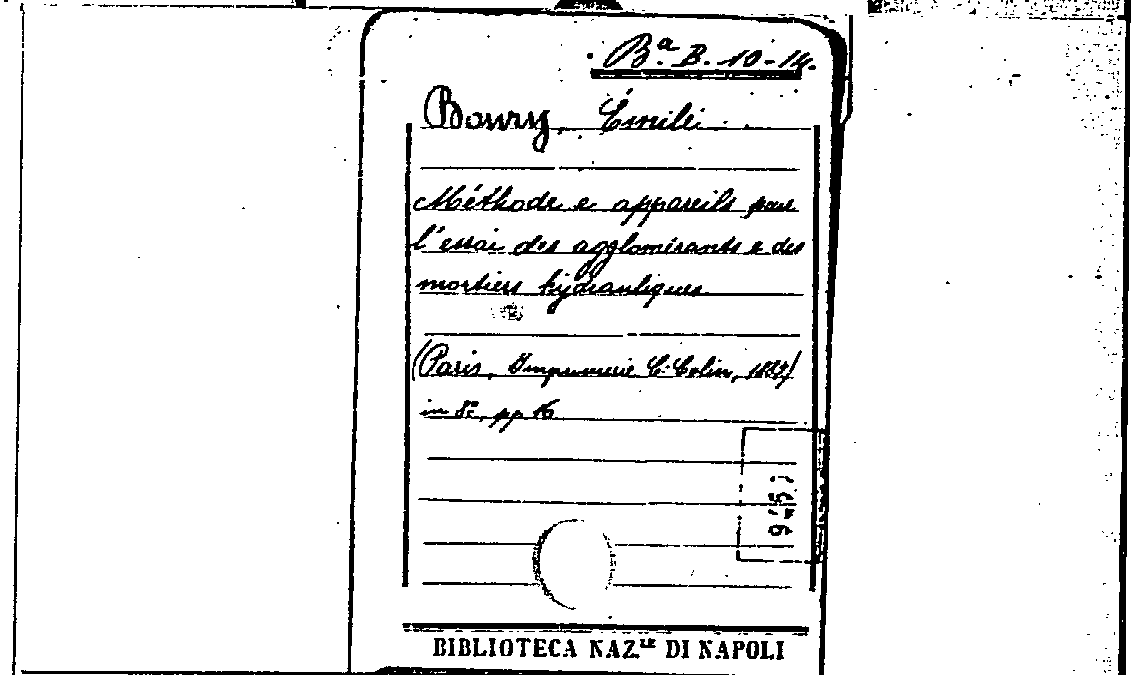 Bª. B. 10-14.
Boury, Émile
Méthode e appareils pour
l'essai des agglomérants e des
mortiers hydrauliques
(Paris, Imprimerie C. Colin,
in 8º, pp 16
BIBLIOTECA NAZ.LE DI NAPOLI